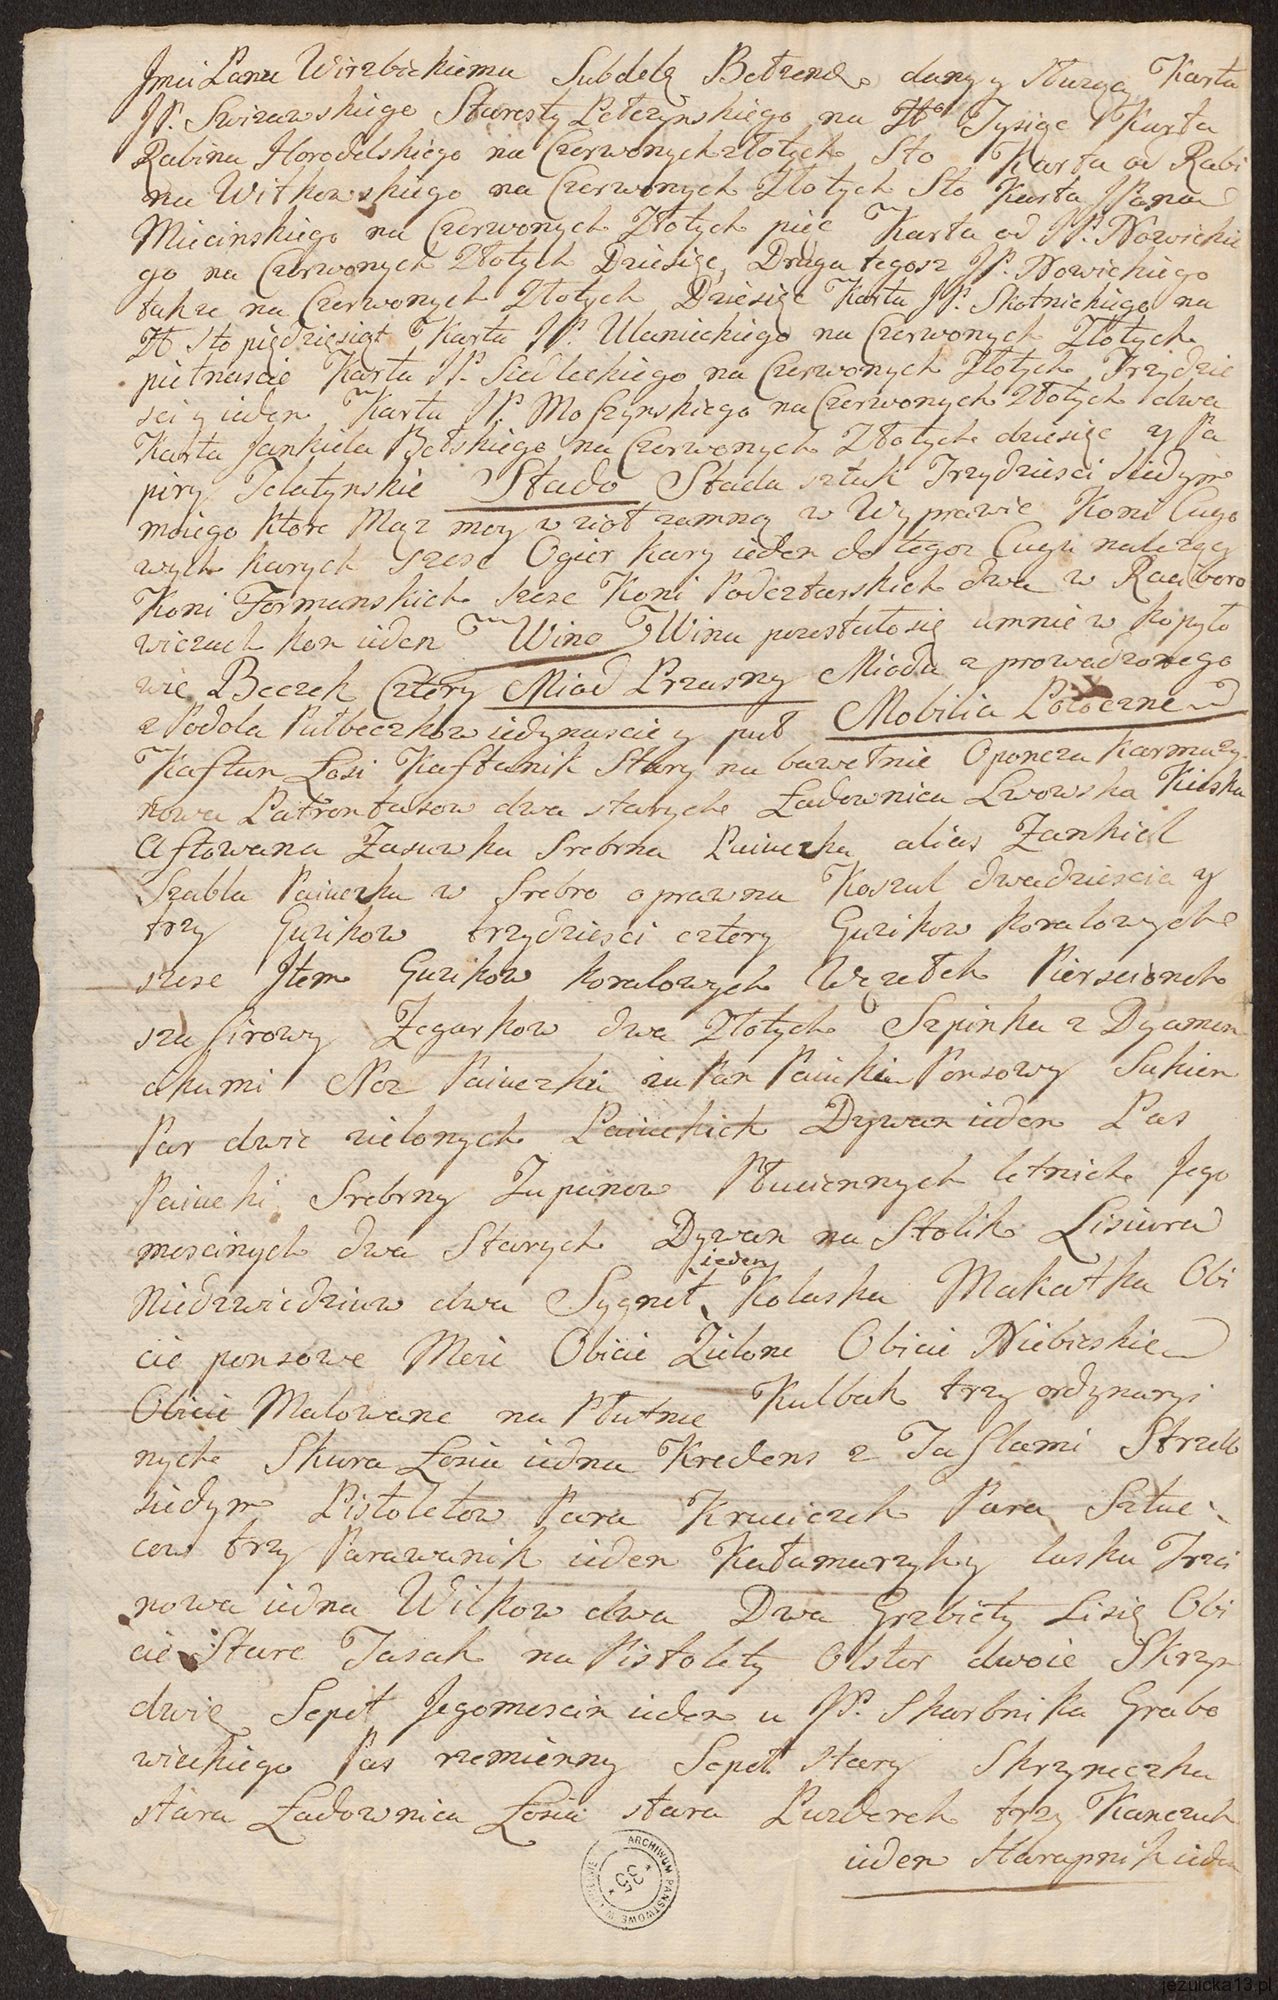 Jmci Panu Wirzbickiemu Subdelę Bełzene dany y słuzący Karta
JP. Swirzawskiego Starosty Petczynskiego na Zł Tysiąc Karta
Rabina Horodelskiego na Czerwonych złotych Sto Karta od Rabi
na Witkowskiego na Czerwonych Złotych Sto Karta JPana
Miecinskiego na Czerwonych Złotych pięc Karta od JP. Nowickie
go na Czerwonych Złotych Dziesięc, Druga tegosz JP. Nowickiego
takze na Czerwonych Złotych Dziesięc Karta JP. Skotnickiego na
Zł sto pięcdziesiąt Karta JP. Ulanickiego na Czerwonych Złotych
pietnascie Karta JP. Siedleckiego na Czerwonych Złotych Trzydzie
sci y ieden Karta JP. Moszynskiego na Czerwonych Złotych dwa
Karta Jankiela Bełskiego na Czerwonych Złotych dziesięc y Pa
piry Telatynskie Stado Stada sztuk Trzydziesci siedym
moiego ktore Mąz moy wzioł zamną w Wyprawie Koni Cugo
wych karych szesc Ogier kary ieden do tegoz Cugu nalezący
Koni Formanskich szesc Koni Podczlarskich dwa w Raciboro
wicach kon ieden Wino Wina pozostało się umnie w Kopyło
wie Beczek Cztery Miod Przasny Miodu z prowadzonego
z Podola Pułbeczkow iedynascie y puł Mobilia Potoczne
Kaftan Łosi Kaftanik Stary na bawełnie Oponcza Karmazy
nowa Patrontasow dwa starych Ładownica Lwowska Kieska
Aftowana Zasuwka Srebrna Paiuczka alias Zankiel
Szabla Paiuczka w Srebro oprawna Koszul dwadziescia y
trzy Guzikow trzydziesci cztery Guzikow koralowych
szesc Item Guzikow koralowych Węzełek Piersczionek
szafirowy Zegarkow dwa Złotych Szpinka z Dyamen
cikami Noz Paiuczki zupan Paiucki Ponsowy Sukien
Par dwie zielonych Paiuckich Dywan ieden Pas
Paiucki Srebrny Zupanow Płuciennych letnich Jego
moscinych dwa Starych Dywan na Stolik Lisiura
ieden
Niedzwiedziow dwa Sygnet Kolaska Makatka Obi
cie ponsowe Meie Obicie Zielone Obicie Niebieskie
Obicie Malowane na Płutnie Kulbak trzy ordynaryi
nych Skura Łosia iedna Kredens z Taflami Strzelb
siedym Pistoletow Para Kruciczek Para Sztuc
cow trzy Parawanik ieden Kałamarzyky laska Trzci
nowa iedna Wilkow dwa Dwa Grzbiety Lisię Obi
cie Stare Tasak na Pistolety Olster dwoie Skrzyn
dwie Sepet Jegomoscin ieden u JP. Skarbnika Grabo
wieckiego Pas rzemienny Sepet stary Skrzyneczka
stara Ładownica Łosia stara Puzderek trzy Kanczuk
ieden Harapnik ieden
ARCHIWUM PAŃSTWOWE W LUBLINIE
jezuicka13.pl